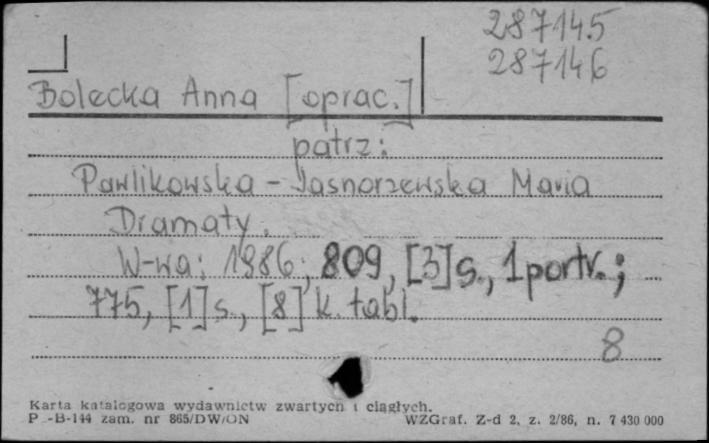 287145
287146
Bolecka Anna [oprac.]
patrz:
Pawlikowska - Jasnorzewska Maria
Dramaty.
W-wa: 1986; 809, [3] s., 1 portr.;
775, [1] s., [8] k. tabl.
8
Karta katalogowa wydawnictw zwartych i ciągłych.
P -B-144 zam. nr 865/DW/ON WZGraf. Z-d 2, z. 2/86, n. 7 430 000